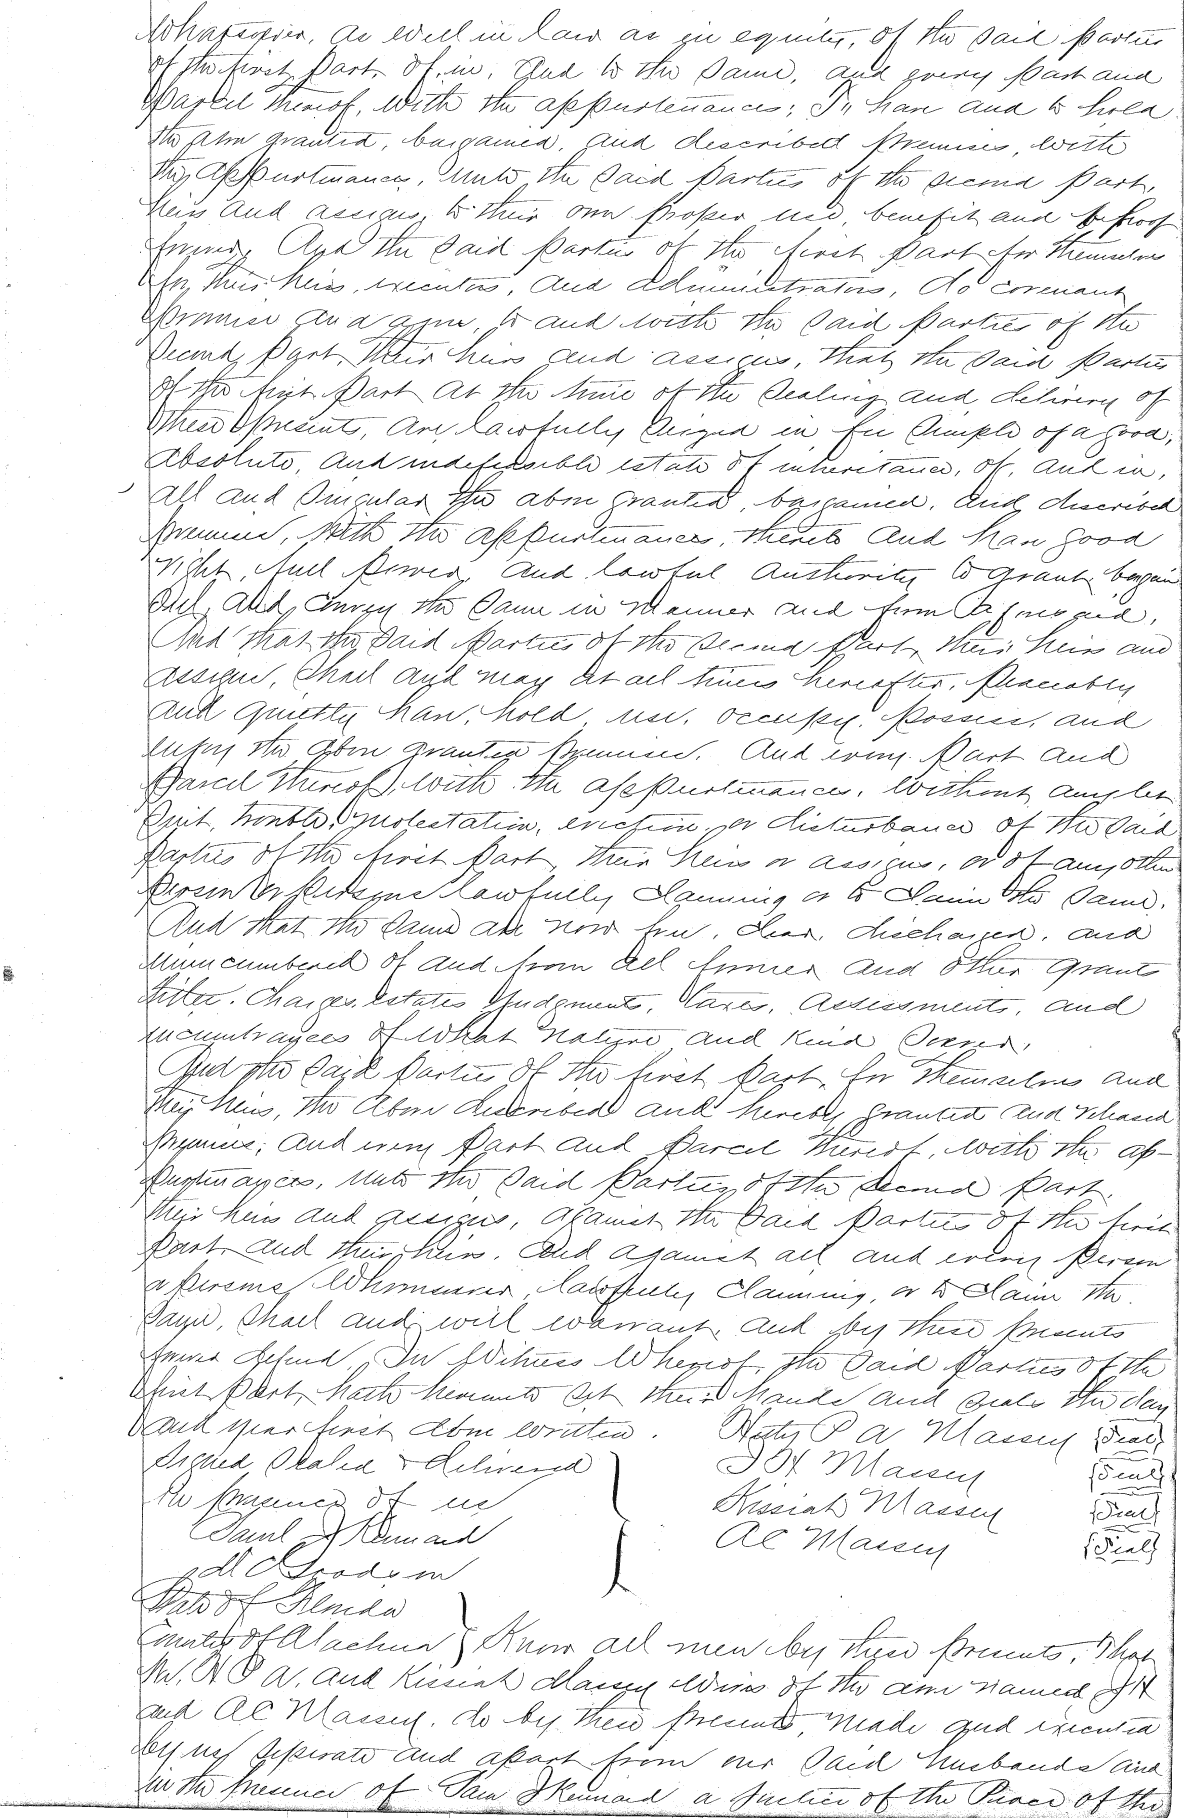 Whatsoever, as well in law as in equity, of the said parties
of the first part, of, in, and to the same, and every part and
parcel thereof, with the appurtenances; To have and to hold
the above granted, bargained, and described premises, with
the appurtenances, unto the said parties of the second part,
heirs and assigns, to their own proper use, benefit and behoof
forever, And the said parties of the first part for themselves
for their heirs, executors, and administrators, do covenant
promise and agree, to and with the said parties of the
second part, their heirs and assigns, that the said parties
of the first part at the time of the sealing and delivery of
these presents, are lawfully seized in fee simple of a good,
absolute, and indefeasible estate of inheritance, of, and in,
all and singular the above granted, bargained, and described
premises, with the appurtenances, thereto and have good
right, full power, and lawful authority to grant, bargain
sell, and convey the same in manner and form aforesaid,
And that the said parties of the second part, their heirs and
assigns, shall and may at all times hereafter, peaceably
and quietly have, hold, use, occupy, possess, and
enjoy the above granted premises, And every part and
parcel thereof, with the appurtenances, without any let
suit, trouble, molestation, eviction, or disturbance of the said
parties of the first part, their heirs or assigns, or of any other
person or persons lawfully claiming or to claim the same,
And that the same are now free, clear, discharged, and
unincumbered of and from all former and other grants
titles, charges, estates, judgments, taxes, assessments, and
incumbrances of what nature and kind soever,
And the said parties of the first part, for themselves and
their heirs, the above described and hereby granted and released
premises, and every part and parcel thereof, with the ap-
purtenances, unto the said parties of the second part,
their heirs and assigns, against the said parties of the first
part, and their heirs, and against all and every person
or persons, whomsoever, lawfully claiming, or to claim the
same, shall and will warrant, and by these presents
forever defend, In Witness Whereof, the said parties of the
first part, hath hereunto set their hands and seals the day
and year first above written. Hetty P A Massey {Seal}
Signed Sealed & delivered J H Massey {Seal}
in presence of us Kissiah Massey {Seal}
Saml J Kennard A C Massey {Seal}
State of Florida
County of Alachua } Know all men by these presents, That
We, H P A, and Kissiah Massey wives of the above named J H
and A C Massey, do by these presents, made and executed
by us, seperate and apart from our said husbands and
in the presence of Sam J Kennard a Justice of the Peace of the